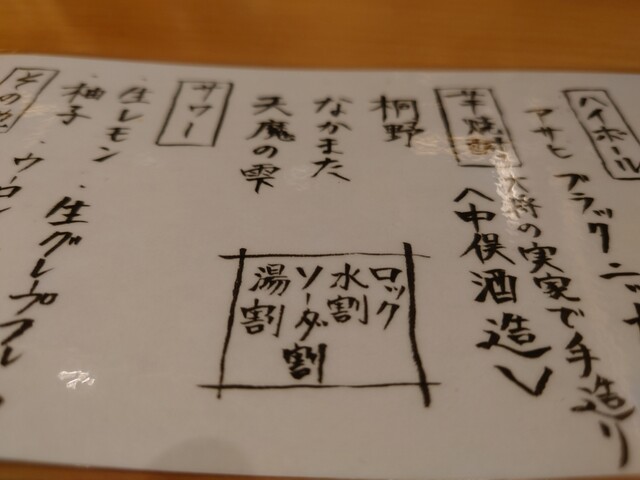 ハイボール
ブラックニッカ
アサヒ
芋焼酎
大将の実家で手造り
<中俣酒造>
桐野
なかまた
天魔の雫
ロック
水割
ソーダ割
湯割
サワー
・生レモン
・柚子
・生グレープフルー
その他
・ウーロン